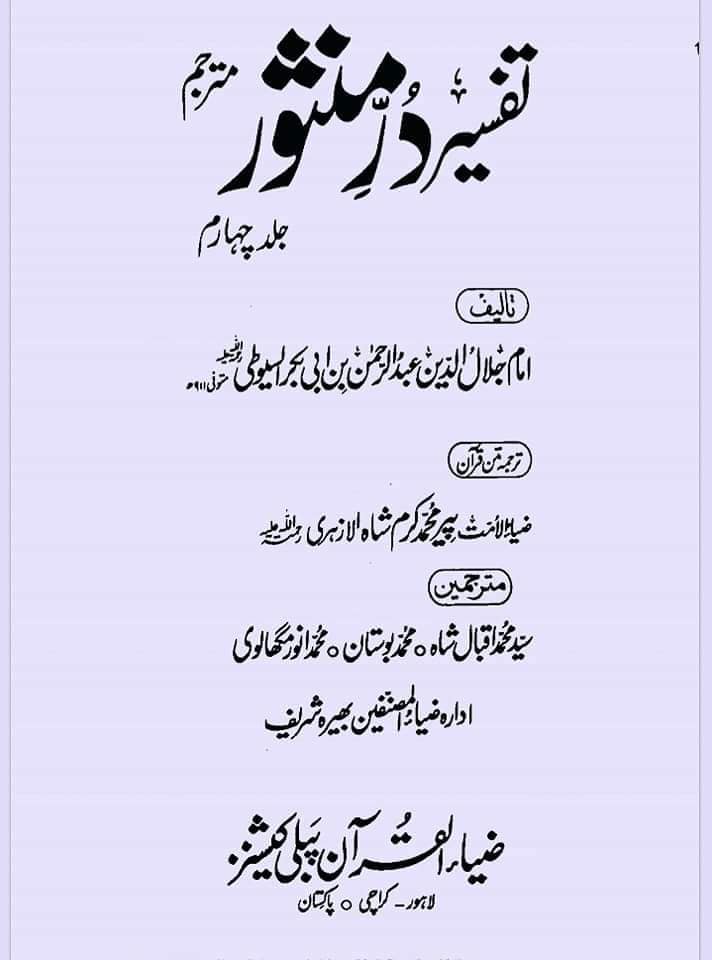 تفسیر دُرِّ منثور مترجم
جلد چہارم
تالیف
امام جلال الدین عبدالرحمٰن بن ابی بکر السیوطی رحمۃ اللہ علیہ متوفی ۹۱۱ھ
ترجمہ متن قرآن
ضیاء الامت پیر محمد کرم شاہ الازہری رحمۃ اللہ علیہ
مترجمین
سید محمد اقبال شاہ ○ محمد بوستان ○ محمد انور مگھالوی
ادارہ ضیاء المصنفین بھیرہ شریف
ضیاء القرآن پبلی کیشنز
لاہور - کراچی ○ پاکستان